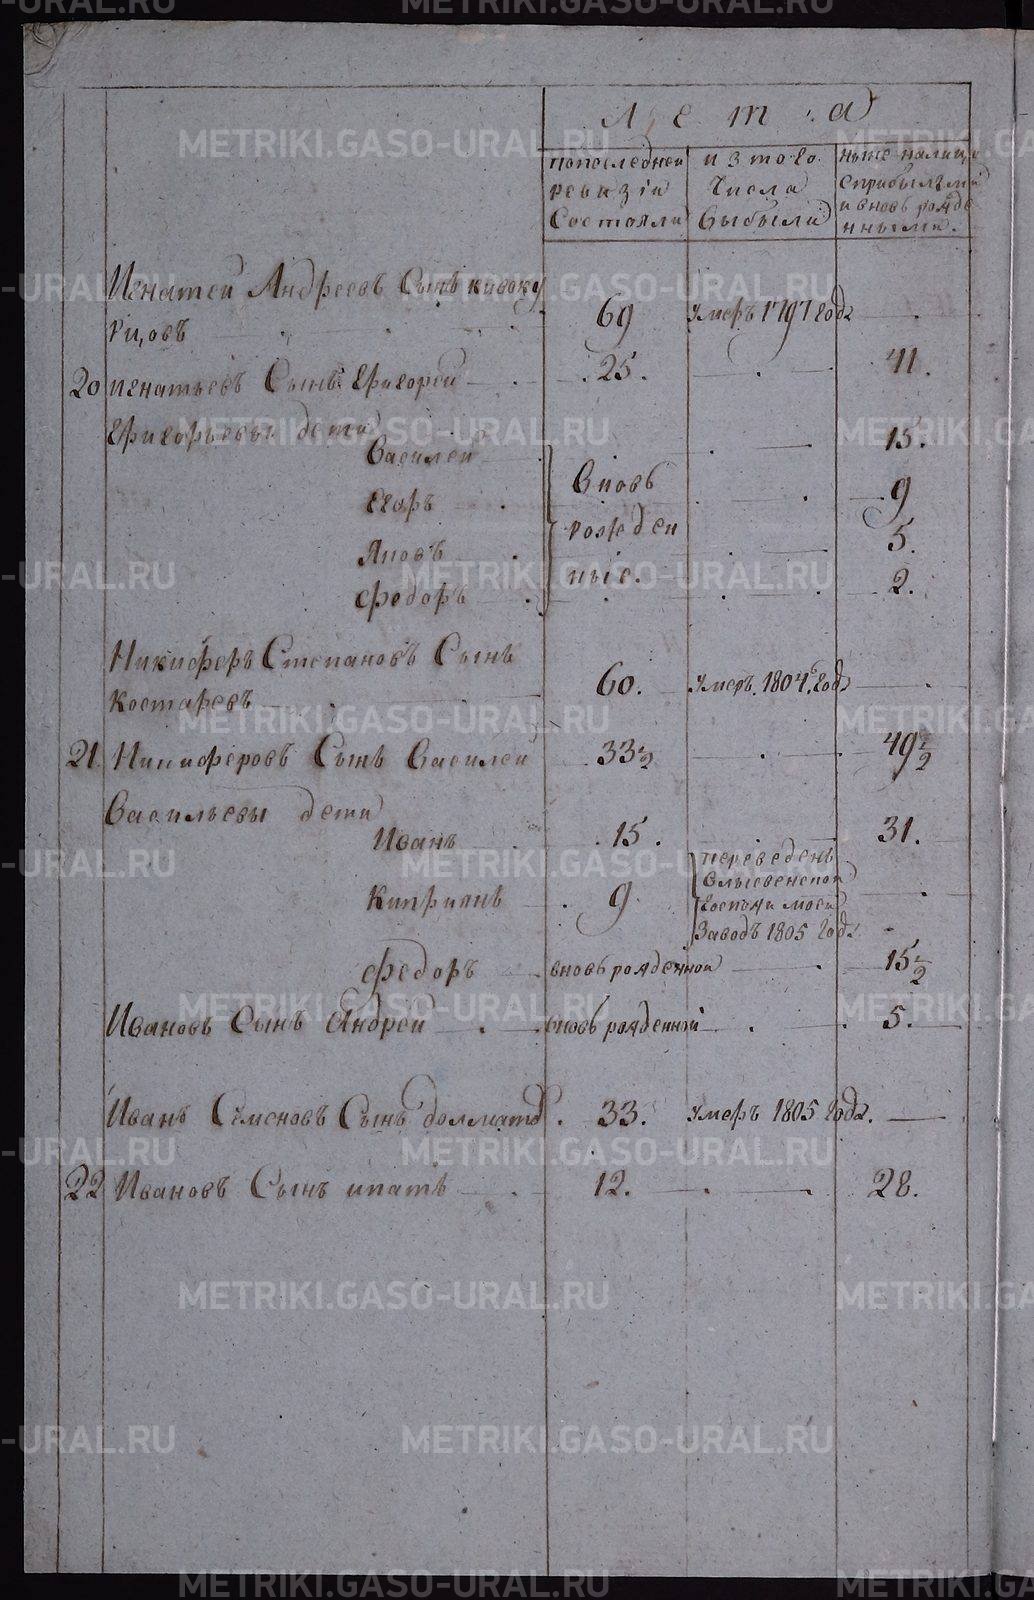 Лета
попоследней ревизіи состояли
изтого числа выбыли
ныне налицо сприбылыми и вновь рожденными.
Игнатей Андреевъ Сынъ кивоку
рцовъ 69 умеръ 1797 года
20 игнатьевъ Сынъ Григорей 25. 41.
Григорьевы дети
Василей 15.
Егоръ Вновь 9
Яковъ рожден 5.
Федоръ ные. 2.
Никифоръ Степановъ Сынъ
Костаревъ 60. умеръ 1804. года
21. Никифоровъ Сынъ Василей 33 1/2 49 1/2
Васильевы дети
Иванъ 15. 31.
Киприянъ 9. переведенъ
влысвенской
Госпожи моей
Заводъ 1805 года
Федоръ вновь рожденной 15 1/2
Ивановъ Сынъ Андрей вновь рожденной 5.
Иванъ Семеновъ Сынъ долматов. 33. умеръ 1805 года.
22 Ивановъ Сынъ ипатъ 12. 28.
METRIKI.GASO-URAL.RU